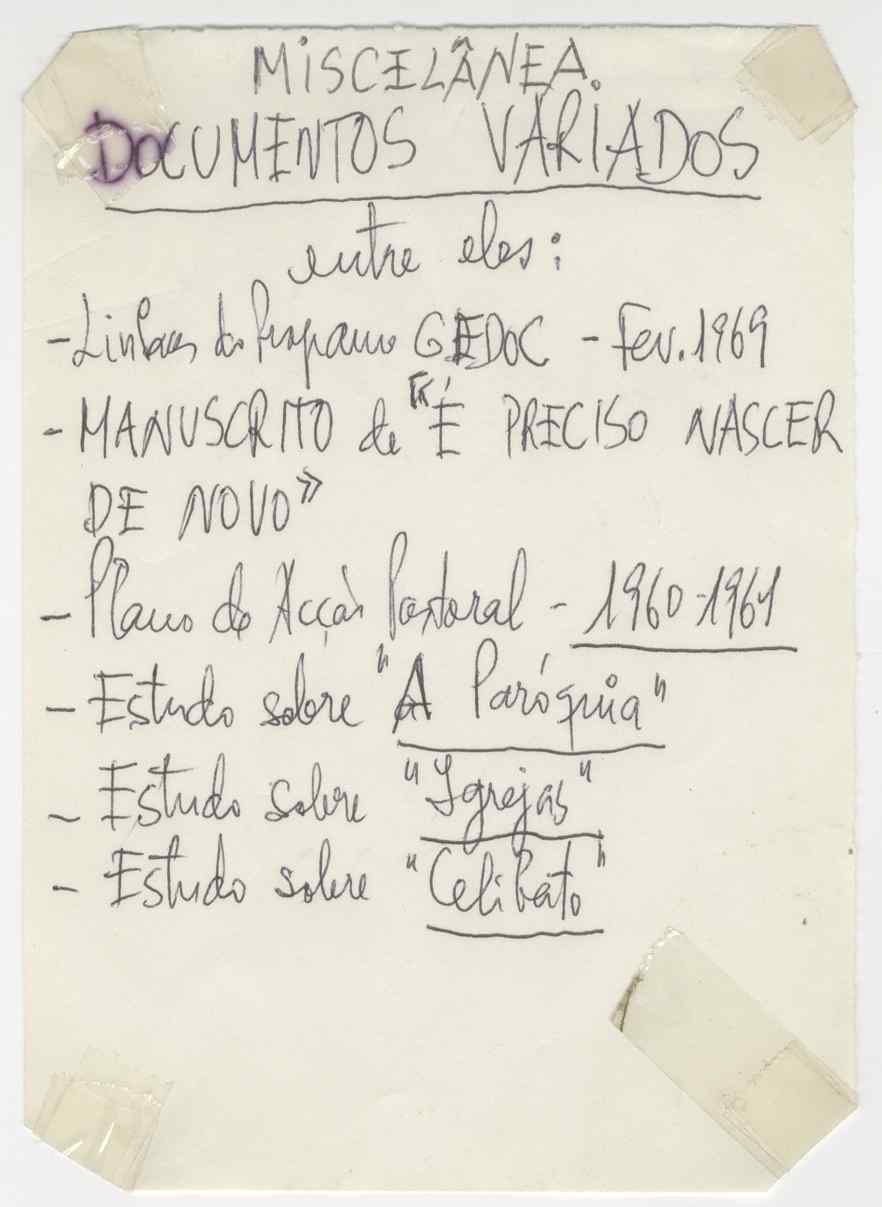 MISCELÂNEA.
DOCUMENTOS VARIADOS
entre eles:
- Linhas do Programa GEDOC - Fev. 1969
- MANUSCRITO de "É PRECISO NASCER
DE NOVO»
- Plano de Acção Pastoral - 1960-1961
- Estudo sobre "A Paróquia"
- Estudo sobre "Igrejas"
- Estudo sobre "Celibato"